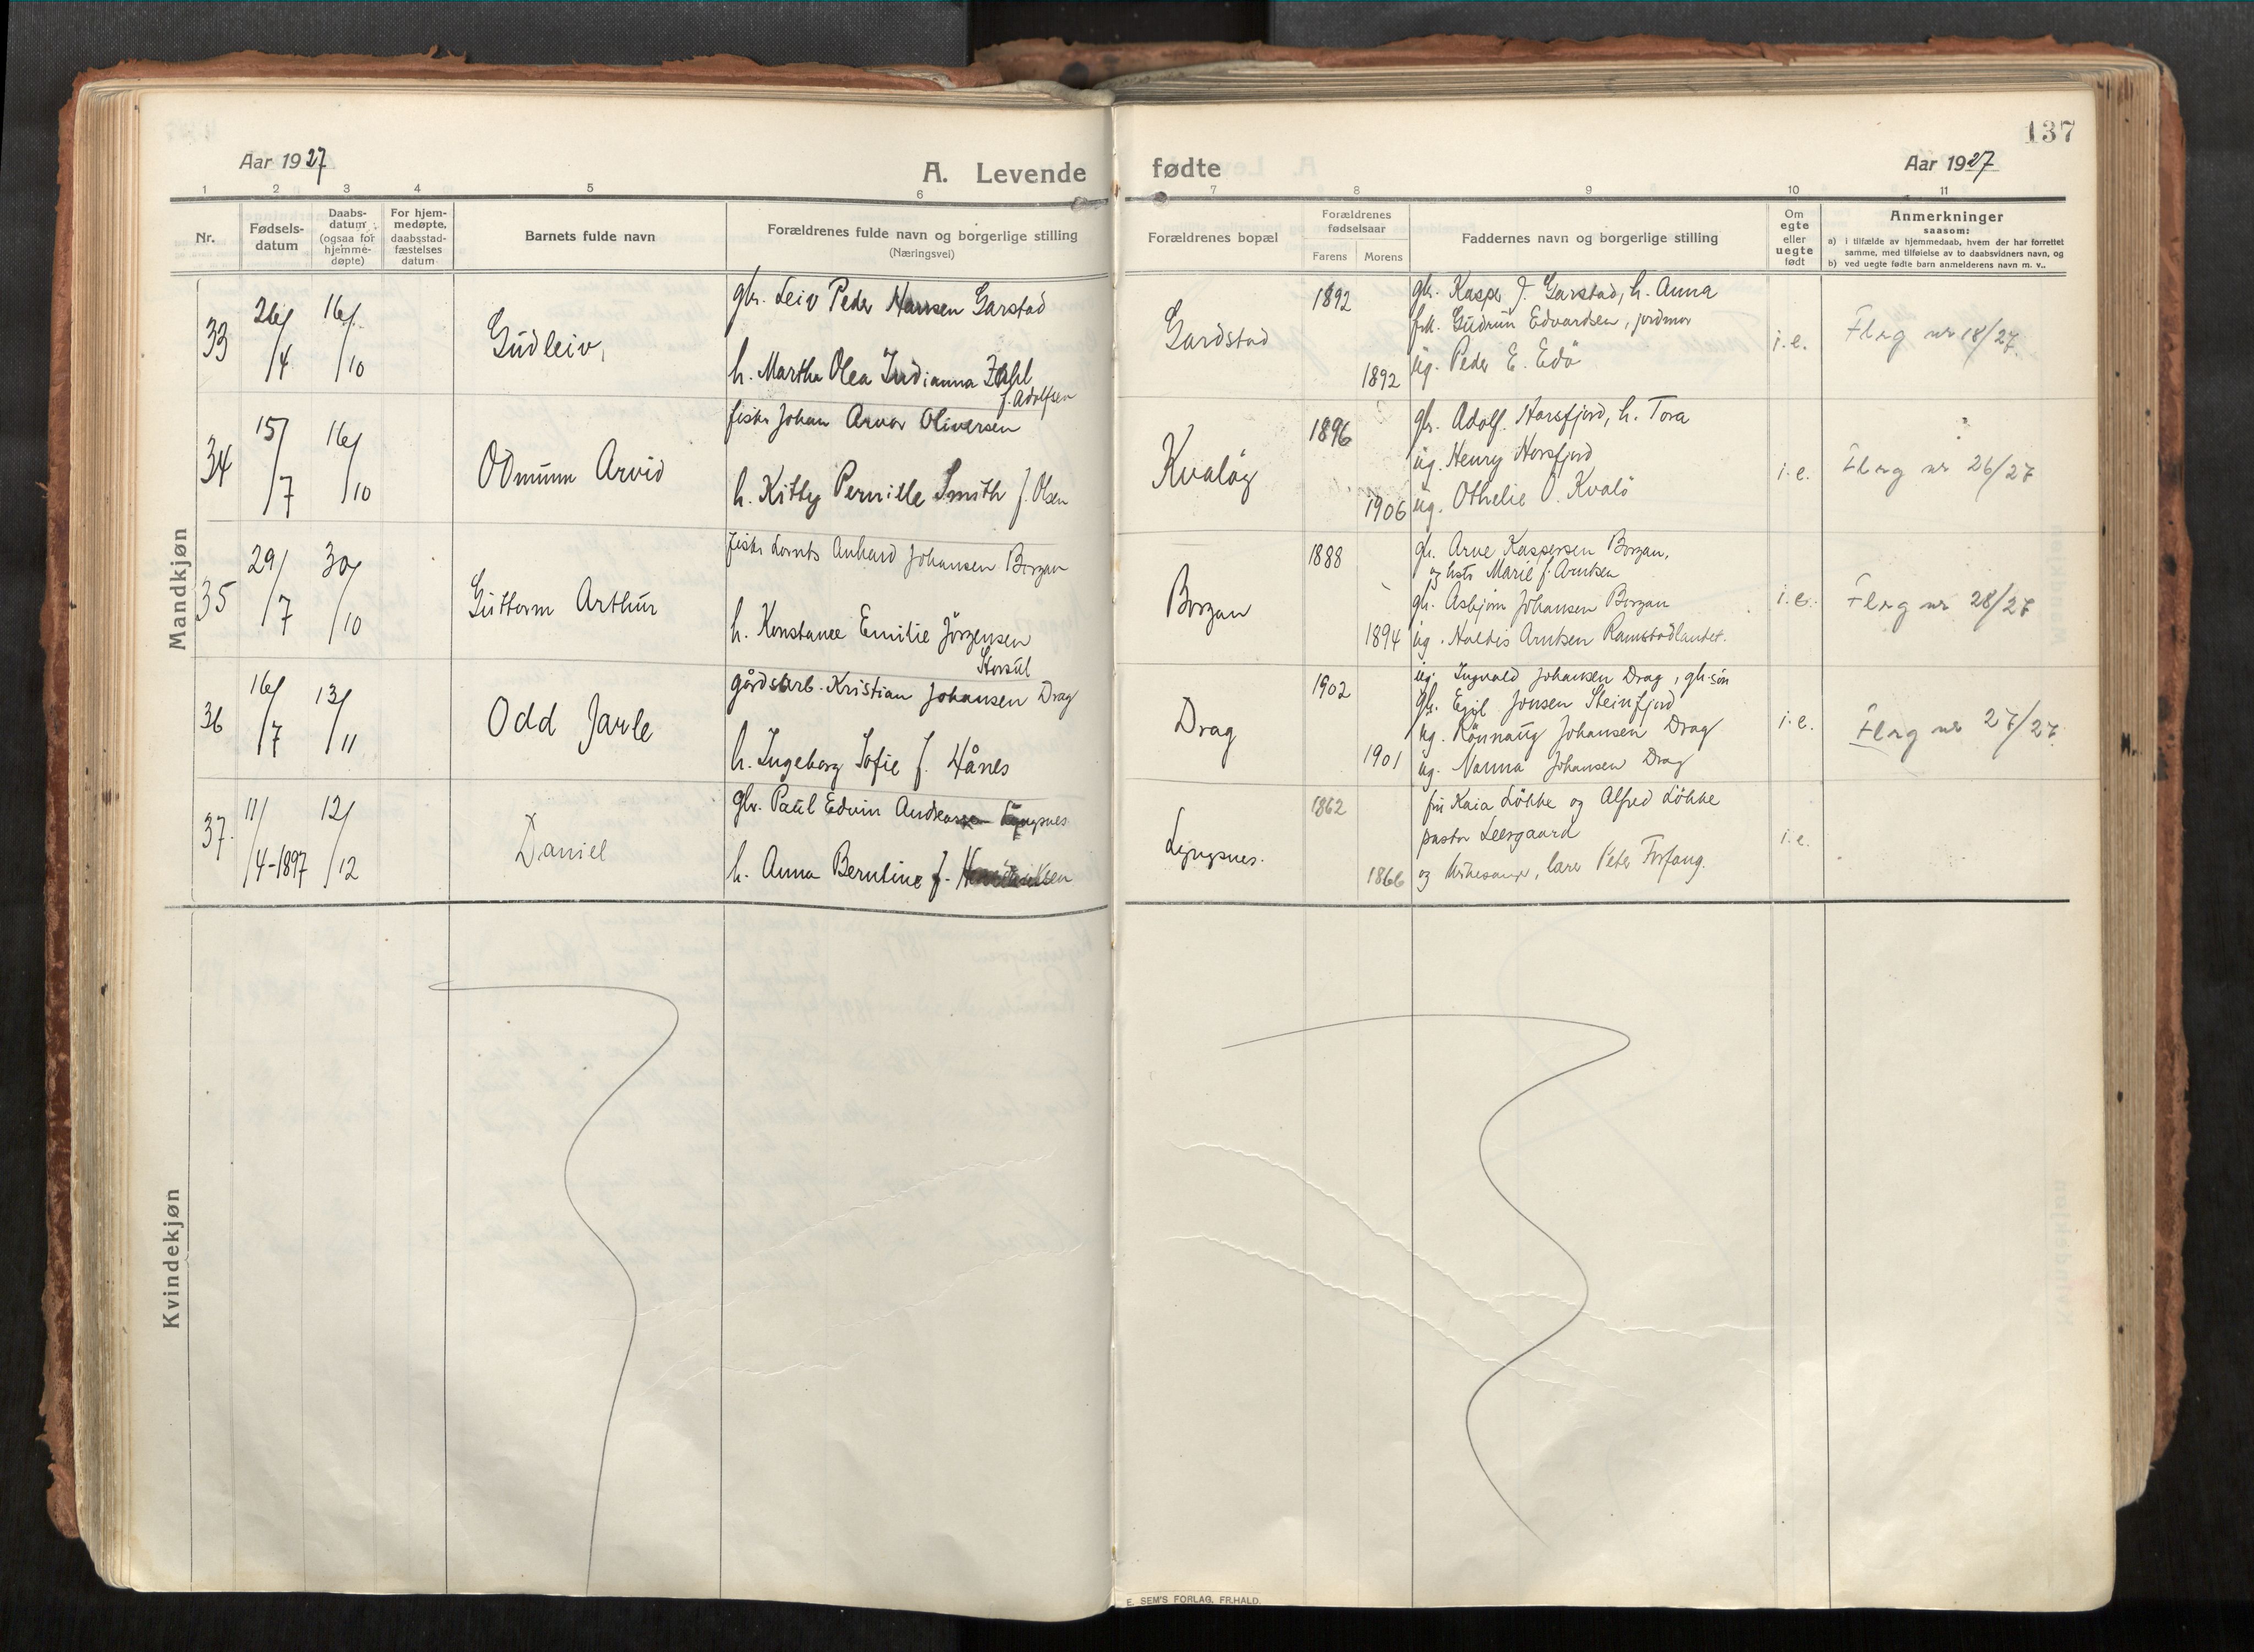 137
Aar 1927
A. Levende fødte
Aar 1927
1 2 3 4 5 6 7 8 9 10 11
Nr.
Fødsels-
datum
Daabs-
datum
(ogsaa for
hjemme-
døpte)
For hjem-
medøpte,
daabsstad-
fæstelses
datum
Barnets fulde navn
Forældrenes fulde navn og borgerlige stilling
(Næringsvei)
Forældrenes bopæl
Forældrenes
fødselsaar
Farens Morens
Faddernes navn og borgerlige stilling
Om
egte
eller
uegte
født
Anmerkninger
saasom:
a) i tilfælde av hjemmedaab, hvem der har forrettet
samme, med tilføielse av to daabsvidners navn, og
b) ved uegte fødte barn anmelderens navn m. v..
Mandkjøn
33
26/4
16/10
Gudleiv,
gbr. Leiv Peder Hansen Garstad
h. Martha Olea Indianna Zahl
f. Adolfsen
Gardstad
1892
1892
gbr. Kasper J. Garstad, h. Anna
frk. Gudrun Edvardsen, jordmor
ug. Peder E. Edö
i.e.
Flag nr 18/27.
34
15/7
16/10
Odmunn Arvid
fisker Johan Arvor Oliversen
h. Kitty Pernille Smith f. Olsen
Kvalöy
1896
1906
gbr. Adolf Horsfjord, h. Tora
ug. Henry Horsfjord
ug. Othelie O. Kvalö
i.e.
Flag nr 26/27
35
29/7
30/10
Guttorm Arthur
fisker Lornts Anhard Johansen Borgan
h. Konstance Emilie Jörgensen
Storsul
Borgan
1888
1894
gb. Arne Kaspersen Borgan,
og hstr Marie f. Arntsen
gb. Asbjörn Johansen Borgan
ug. Haldis Arntsen Ramstadlandet.
i.e.
Flag nr 28/27
36
16/7
13/11
Odd Jarle
gårdsarb. Kristian Johansen Drag
h. Ingeborg Sofie f. Hånes
Drag
1902
1901
ug. Ingvald Johansen Drag, gb. sön
gbr. Egil Jonsen Steinfjord
ug. Rönnaug Johansen Drag
ug. Nanna Johansen Drag
i.e.
Flag nr 27/27.
37.
11/4-1897
12/12
Daniel
gbr. Paul Edvin Andreassen Lyngsnes
h. Anna Berntine f.
Lyngsnes.
1862
1866
fru Kaia Lökke og Alfred Lökke
pastor Leergaard
og kirkesanger, lærer Peter Forfang.
i.e.
Kvindekjøn
E. SEM'S FORLAG, FR.HALD.